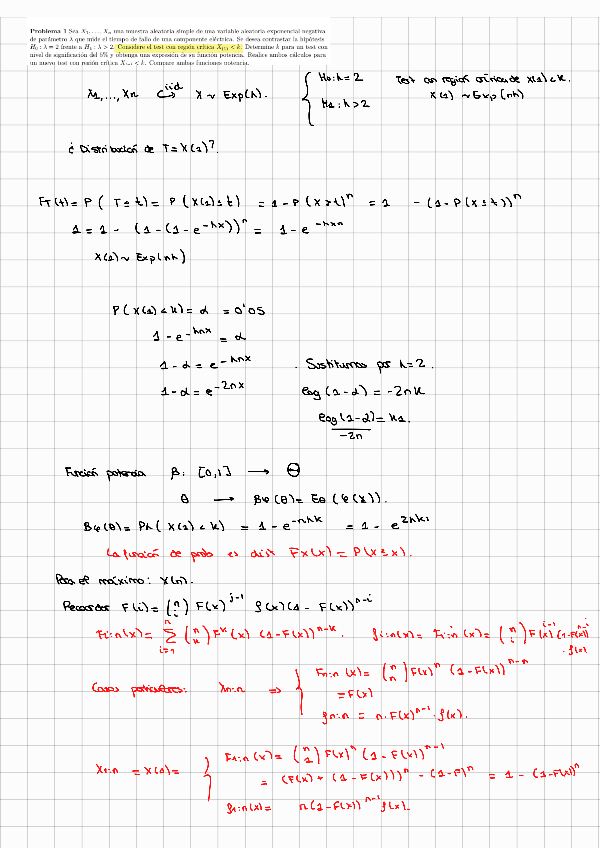 Problema 1 Sea X₁, . . . , Xₙ una muestra aleatoria simple de una variable aleatoria exponencial negativa
de parámetro λ que mide el tiempo de fallo de una componente eléctrica. Se desea contrastar la hipótesis
H₀ : λ = 2 frente a H₁ : λ > 2. Considere el test con región crítica X₍₁₎ < k. Determine k para un test con
nivel de significación del 5% y obtenga una expresión de su función potencia. Realice ambos cálculos para
un nuevo test con región crítica X₍ₙ₎ < k. Compare ambas funciones potencia.
X1,...,Xn iid X ~ Exp(λ). H0: λ = 2 Test con región crítica de X(1) < k.
H1: λ > 2 X(1) ~ Exp(nλ)
¿ Distribución de T = X(1)?
FT(t) = P( T ≤ t) = P( X(1) ≤ t) = 1 - P(X > t)^n = 1 - (1 - P(X ≤ t))^n
1 = 1 - (1 - (1 - e^-λx))^n = 1 - e^-λxn
X(1) ~ Exp(nλ)
P( X(1) < k) = α = 0'05
1 - e^-λnx = α
1 - α = e^-λnx . Sustituimos por λ = 2.
1 - α = e^-2nx log(1-α) = -2nk
log(1-α) / -2n = k1.
Función potencia β: [0,1] → Θ
θ → βφ(θ) = Eθ(φ(x)).
βφ(θ) = Pλ( X(1) < k) = 1 - e^-nλk = 1 - e^2λk1
La función de prob es dist FX(x) = P(X ≤ x).
Para el máximo: X(n).
Recordar F(i) = (n i) F(x)^j-1 f(x)(1 - F(x))^n-i
Fi:n(x) = Σ i=1 n (n k) F^k(x) (1-F(x))^n-k. fi:n(x) = Fi:n(x) = (n i) F(x)^i-1 (1-F(x))^n-i · f(x)
Casos particulares: Xn:n ⇒ Fn:n(x) = (n n) F(x)^n (1-F(x))^n-n
= F(x)
fn:n = n·F(x)^n-1 · f(x).
X1:n = X(1) = F1:n(x) = (n 1) F(x)^n (1 - F(x))^n-1
= (F(x) + (1 - F(x)))^n - (1-F)^n = 1 - (1-F(x))^n
f1:n(x) = n(1-F(x))^n-1 f(x).